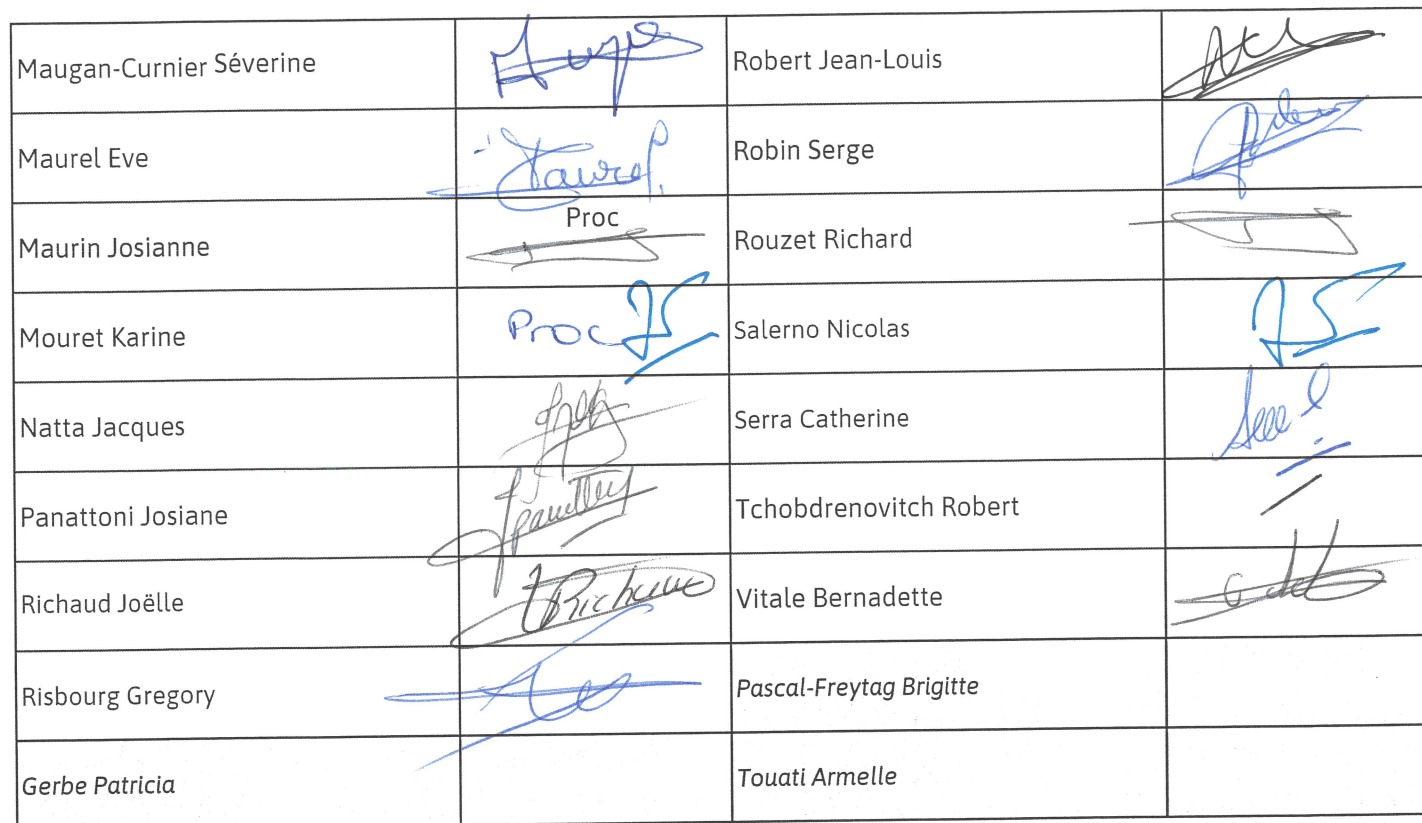 Maugan-Curnier Séverine
Robert Jean-Louis
Maurel Eve
Maurel
Robin Serge
Maurin Josianne
Proc
Rouzet Richard
Mouret Karine
Proc JS
Salerno Nicolas
JS
Natta Jacques
Serra Catherine
Panattoni Josiane
Tchobdrenovitch Robert
Richaud Joëlle
Vitale Bernadette
Risbourg Gregory
Pascal-Freytag Brigitte
Gerbe Patricia
Touati Armelle